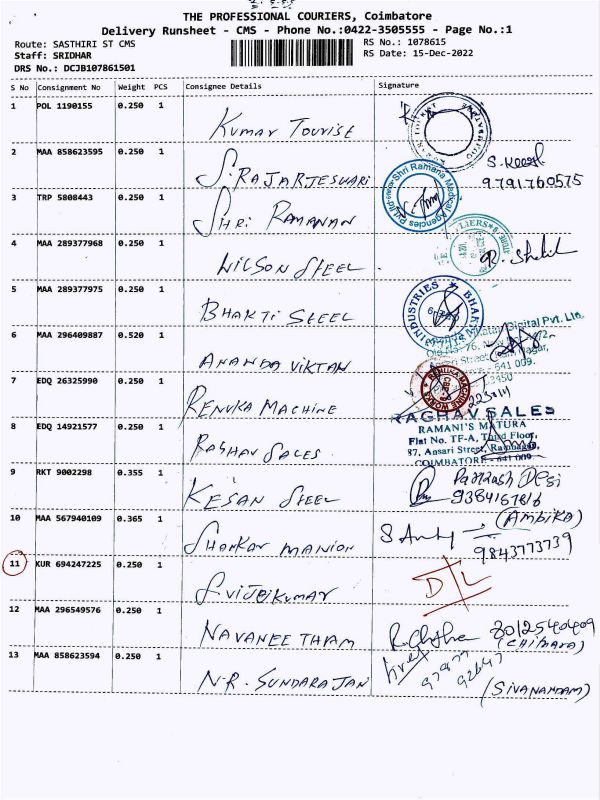 THE PROFESSIONAL COURIERS, Coimbatore
Delivery Runsheet - CMS - Phone No.:0422-3505555 - Page No.:1
Route: SASTHIRI ST CMS
RS No.: 1078615
Staff: SRIDHAR
RS Date: 15-Dec-2022
DRS No.: DCJB107861501
S No Consignment No Weight PCS Consignee Details Signature
1 POL 1190155 0.250 1
KUMAR TOURIST
2 MAA 858623595 0.250 1
S. RAJARJESWARI
9791760575
Shri Ramana Medical Agencies Pvt Ltd
3 TRP 5808443 0.250 1
SHRI RAMANAN
4 MAA 289377968 0.250 1
WILSON STEEL
5 MAA 289377975 0.250 1
BHAKTI STEEL
INDUSTRIES ★ BHAKTI
6 MAA 296409887 0.520 1
ANANDA VIKTAN
Digital Pvt. Ltd.
641 009.
7 EDQ 26325990 0.250 1
RENUKA MACHINE
RENUKA MACHINE WORKS
8 EDQ 14921577 0.250 1
RAGHAV SALES
RAGHAV SALES
RAMANI'S MATURA
Flat No. TF-A, Third Floor,
87, Ansari Street, Ramnagar,
COIMBATORE - 641 009
9 RKT 9002298 0.355 1
KESAN STEEL
Parkash Desi
9384167816
10 MAA 567940109 0.365 1
SHANKAR MANION
(AMBIKA)
9843773739
11 KUR 694247225 0.250 1
S. VIJEIKUMAR
D/L
12 MAA 296549576 0.250 1
NAVANEETHAM
8012540409
13 MAA 858623594 0.250 1
N.R. SUNDARAJAN
(SIVANANDAM)